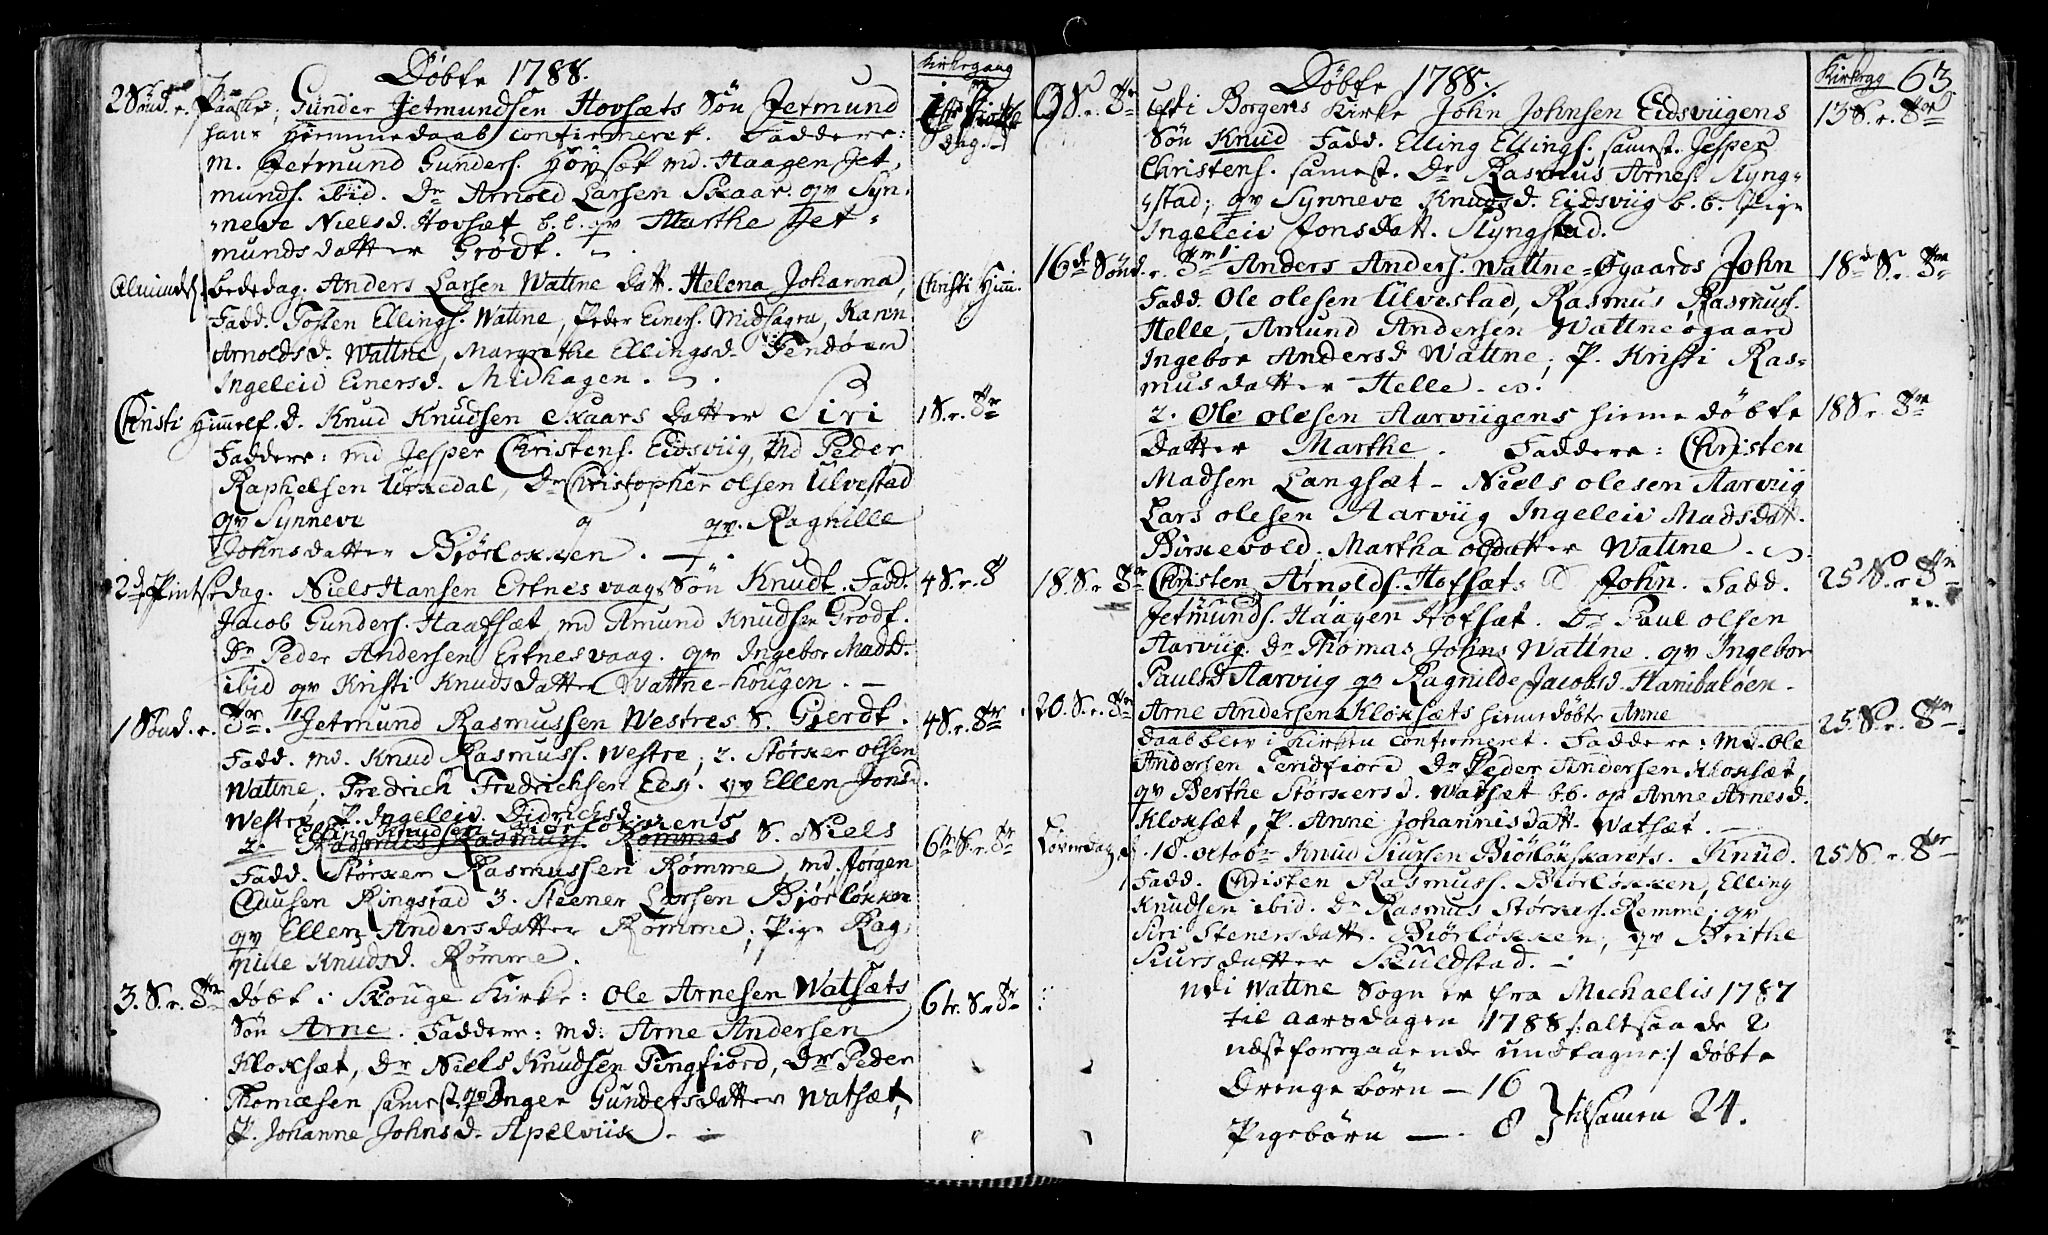 Døbte 1788.
Kirkegang
2 Sønd. e. Paaske; Gunder Jetmundsen Hovsæts Søn Jetmund
hans Hiemmedaab confirmeret. Faddere:
dag.
m. Jetmund Gunders. Hovsæt md. Haagen Jet-
munds. ibid. Dr Arnold Larsen Skaar. qv Syn-
neve Nielsd. Hovsæt b.b. qv Marthe Jet-
munds datter Grødt.
Almindel. bededag. Anders Larsen Watne Datt. Helena Johanna, Christi Him.
Fadd. Tosten Ellings. Watne, Peder Einers. Midhagen, Karen
Arnoldsd. Watne, Margrethe Ellingsd. Fendøen
Ingeleiv Einersd. Midhagen.
Christi Himelf. D. Knud Knudsen Skaars Datter Siri 1 S. e. Tr
Faddere: md Jesper Christens. Eidsviig, md Peder
Raphelsen Urkedal, Dr Christopher olsen Ulvestad
qv Synneve qv. Raghille
Johnsdatter Bjørlokken.
2d Pintsedag. Niels Hansen Ertnesvaags Søn Knudt. Fadd. 4 S. e. Tr
Jacob Gunders. Haafsæt, md Amund Knudsen Grødt.
Dr Peder Andersen Ertnesvaag. qv Ingebor Madsd.
ibid qv Kristi Knudsdatter Wattne-hougen.
1 Sønd. e. Tr. 1 Jetmund Rasmussen Westres S. Gjerdt. 4 S. e. Tr
Fadd. md. Knud Rasmuss. Westre, 2. Størker olsen
Watne. Fredrich Fredrichsen Eeg. qv Ellen Jonsd.
Westre, P. Ingeleiv Didrichsd.
Elling Knudsen Biørløkkens
2. Rasmus Rasmuss. Rømmes S. Niels 6te S. e. Tr
Fadd. Størker Rasmussen Rømme, md. Jørgen
Clausen Ringstad 3. Steener Larsen Bjørløkken
qv Ellen Andersdatter Rømme; Pige Rag-
nille Knudsd. Rømme.
3. S. e. Tr døbt i Skouge Kirke: Ole Arnesen Watsæts 6te S. e. Tr
Søn Arne. Faddere: md: Arne Andersen
Kloksæt, Dr Niels Knudsen Tingfiord, Dr Peder
Thomæsen samest. qv Inger Gundersdatter Watsæt,
P. Johanne Johnsd. Apelviik.
Døbte 1788.
Kirkegg 63
9 S. e. Tr i Borgens Kirke John Johnsen Eidsviigens 13 S. e. Tr
Søn Knud Fadd. Elling Ellings. samest. Jesper
Christens. samest. Dr Rasmus Arnes. Slyng-
stad; qv Synneve Knudsd. Eidsviig b.b. Pige
Ingeleiv Jonsdatt. Slyngstad.
16de Sønd. e. Tr 1 Anders Anders. Wattne-Øgaards John 18de S. e. Tr
Fadd. Ole olesen Ulvestad, Rasmus Rasmuss.
Helle, Amund Andersen Wattneøgaard
Ingebor Andersd Wattne; P. Kristi Ras-
musdatter Helle.
2. Ole olesen Aarviigens hieme døbte 18 S. e. Tr
Datter Marthe. Faddere: Christen
Madsen Langsæt - Niels olesen Aarviig
Lars olesen Aarviig Ingeleiv Madsdatt.
Birkevold. Martha olsdatter Watne.
18. S. e. Tr Christen Arnolds. Hofsæt. John. Fadd. 25 S. e. Tr
Jetmunds. Haagen Hofsæt. Dr Paul olsen
Aarviig. Dr Thomas Johns Wattne. qv Ingebor
Paulsd Aarviig qv Ragnilde Jacobsd. Hanibaløen.
20. S. e. Tr Arne Andersen Kloksæts hieme døbte Anne 25. S. e. Tr
Daab blev i Kirken confirmeret. Faddere: Md. Ole
Andersen Tenfiord Dr Peder Andersen Kloksæt,
qv Berthe Størkersd. Watsæt b.b. qv Anne Arnesd.
Kloksæt, P. Anne Johannisdatt. Watsæt.
Løverdag d. 18. octobr Knud Siursen Biørløkskarets. Knud. 25 S. e. Tr
Fadd. Christen Rasmuss. Biørløkken, Elling
Knudsen ibid. Dr Rasmus Størkers. Remme. qv
Siri Stenersdatt. Biørløkken, qv Brithe
Siursdatter Skuldstad.
i Watne Sogn er fra Michaelis 1787
til aarsdagen 1788 /: altsaa de 2
næstforegaaende undtagne :/ døbte
Drengebørn — 16
Pigebørn — 8 } tilsamen 24.